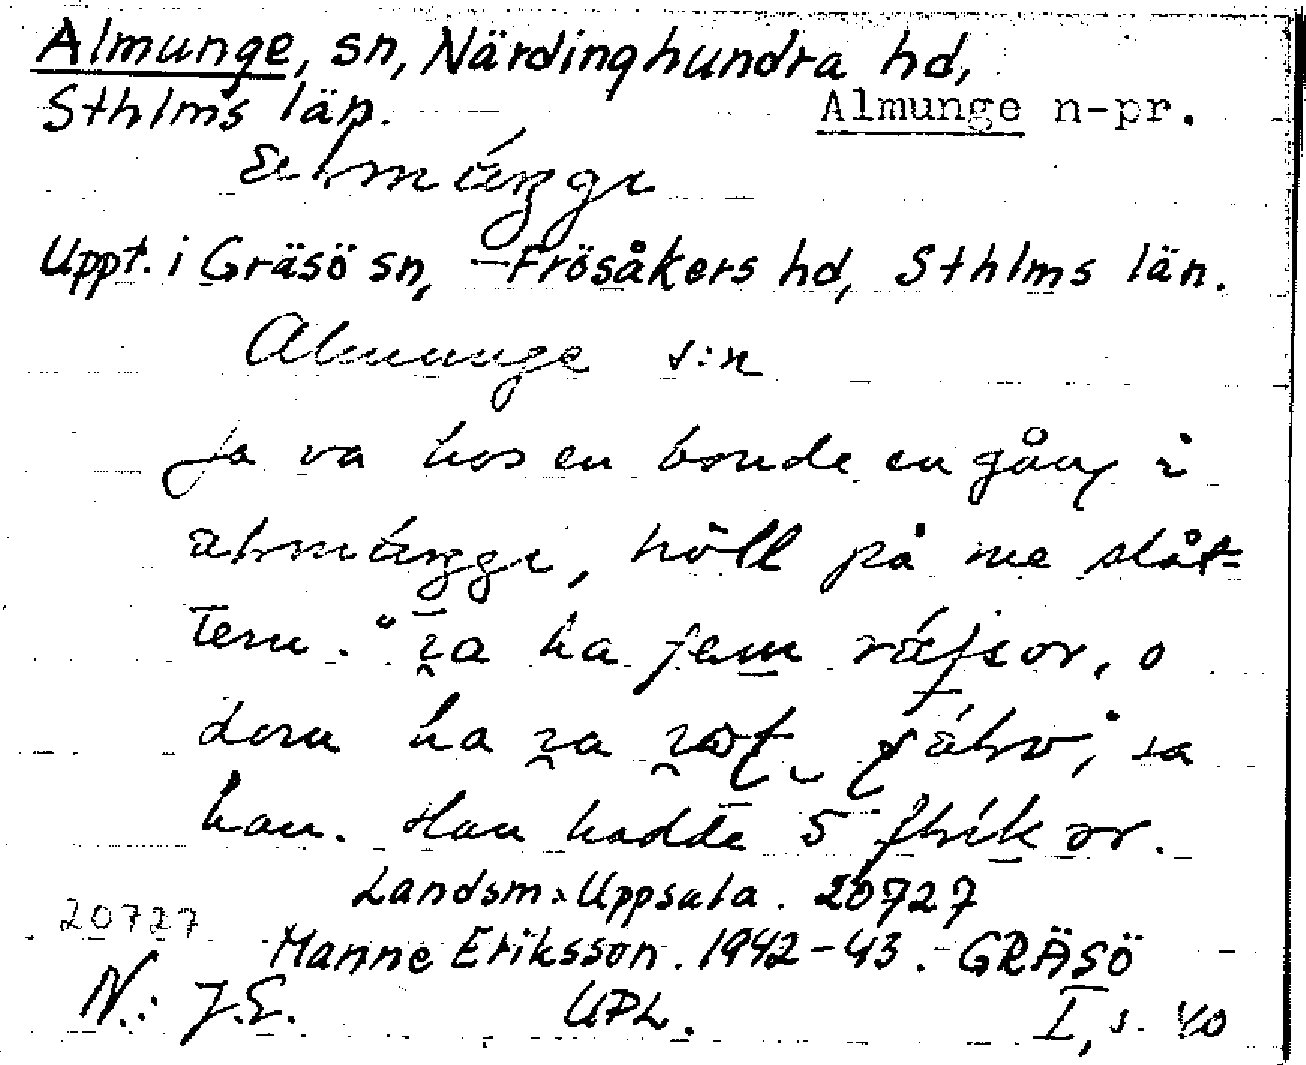 Almunge, sn, Närdinghundra hd,
Sthlms län. Almunge n-pr.
Uppt. i Gräsö sn, Frösåkers hd, Sthlms län.
Almunge s:n
Ja va hos en bonde en gång i
höll på me slåt-
tern. " ha fem räfsor, o
dom ha " sa
han. Han hadde 5
Landsm. Uppsala. 20727
20727
Manne Eriksson. 1942-43. GRÄSÖ
N.: J.E. UPL. I, s. 40